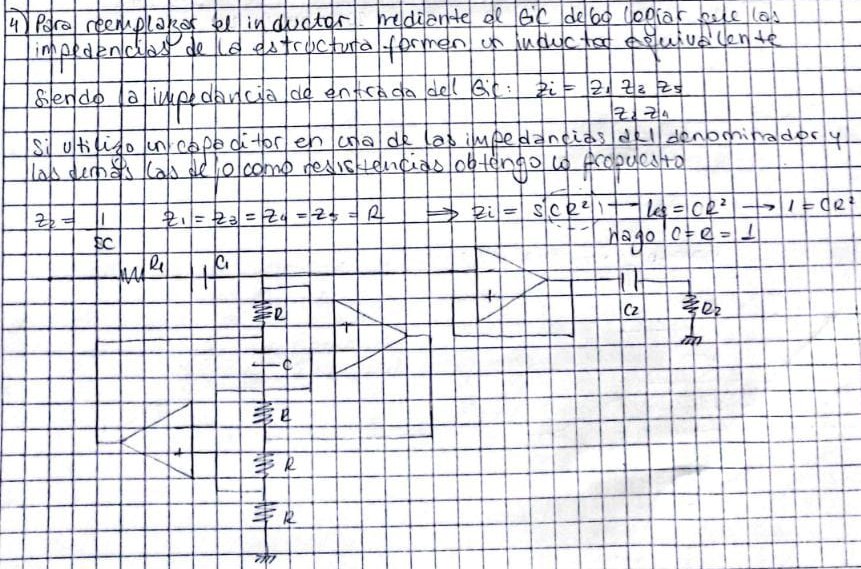 4) Para reemplazar el inductor mediante el GIC debo lograr que las
impedancias de la estructura formen un inductor equivalente
Siendo la impedancia de entrada del GIC: Zi = Z1 Z3 Z5
Z2 Z4
Si utilizo un capacitor en una de las impedancias del denominador y
las demás las dejo como resistencias obtengo lo propuesto
Z2 = 1 Z1 = Z3 = Z4 = Z5 = R ⇒ Zi = S CR² → Leq = CR² → 1 = CR²
SC hago C=R=1
R1 C1
R
+
+
C2 R2
C
R
+
R
R